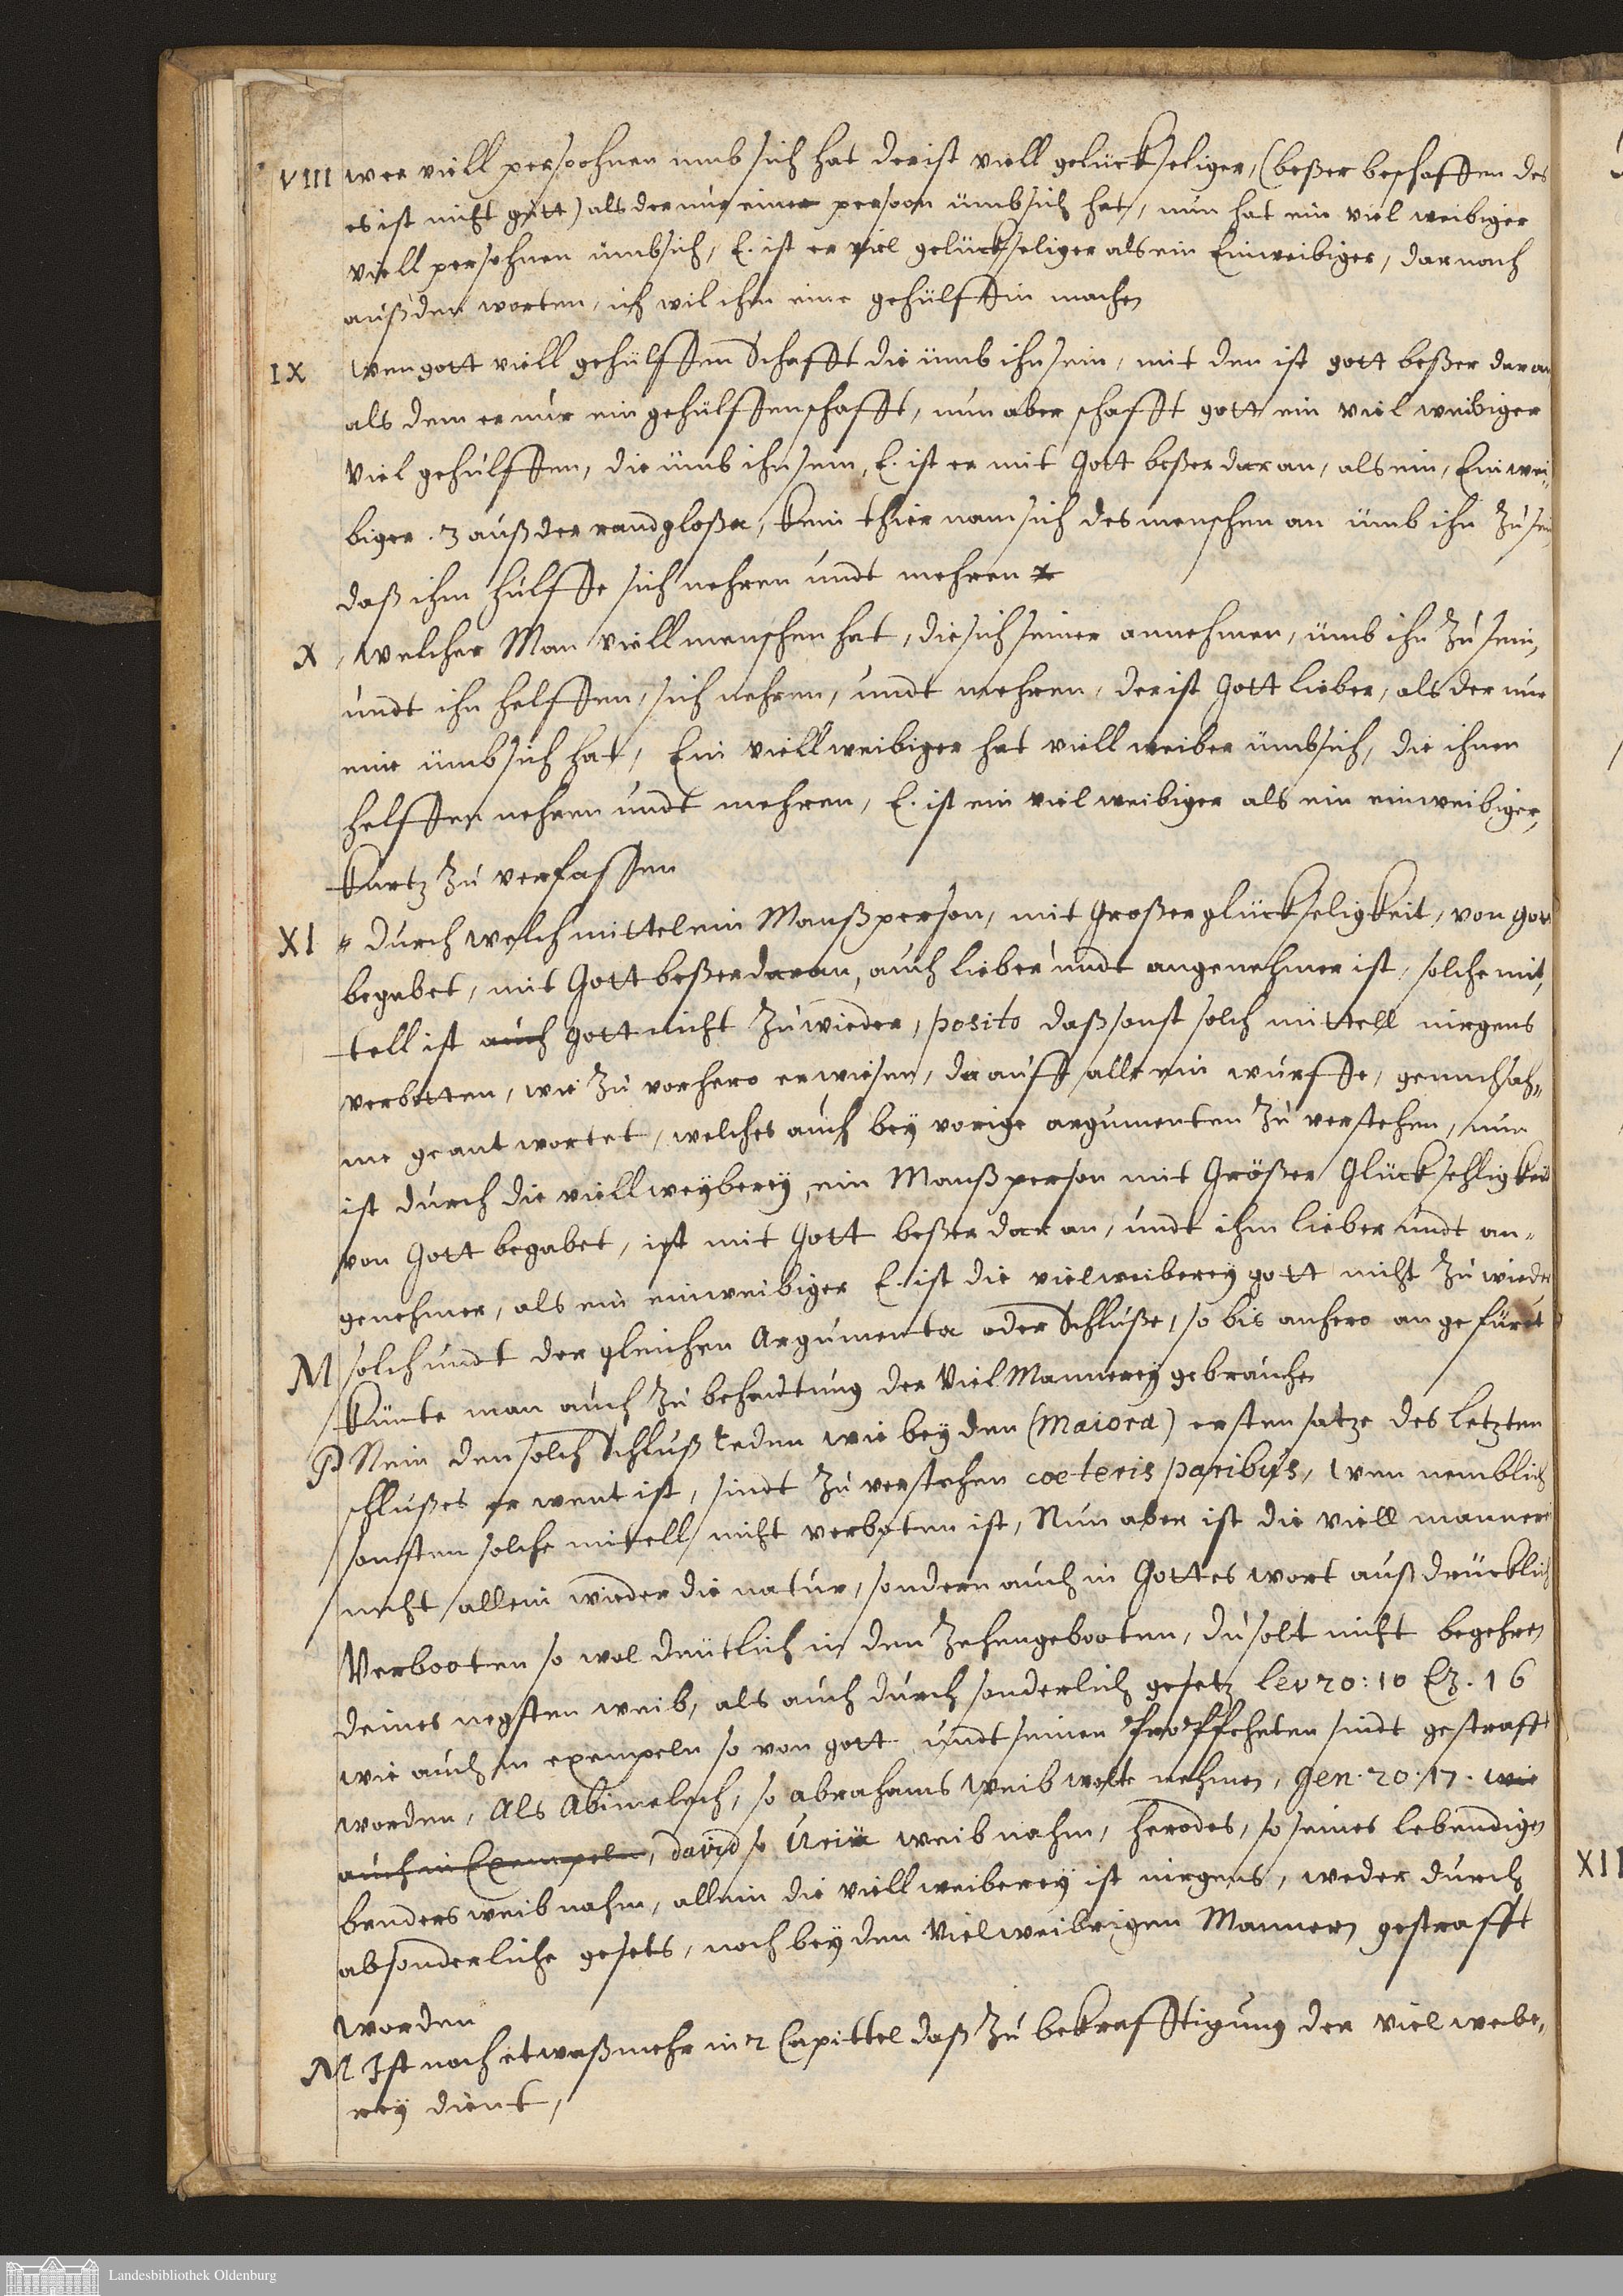 VIII wer viell persoohnen umb sich hat der ist viell gelückseliger, (beßer beschaffen des
es ist nicht gutt) als der nur einer persoon ümb sich hat, nun hat ein viel weibiger
viell persohnen ümb sich, E. ist er viel gelückseliger als ein Einweibiger, darnach
auß den worten, ich wil ihm eine gehülffin machen
IX wem gott viell gehülffen Schafft die ümb ihn sein, mit den ist gott beßer daran
als dem er nur ein gehülffen schafft, nun aber schafft gott ein viel weibiger
viel gehülffen, die ümb ihn sein, E. ist er mit Gott beßer daran, als ein, Einwei,
biger. 3 auß der randgloßa, kein thier nam sich des menschen an ümb ihn zu sein
daß ihm hulffe sich nehren undt mehren
X, welcher Man viell menschen hat, die sich seiner annehmen, ümb ihn zu sein,
undt ihn helffen, sich nehren, undt mehren, der ist Gott lieber, als der nur
eine ümb sich hat, Ein viellweibiger hat viell weiber ümb sich, die ihnen
helffen nehren undt mehren, E. ist ein viel weibiger als ein einweibiger,
kurtz zu verfassen
XI durch welch mittel ein Manß person, mit Großer glückseligkeit, von gott
begabet, mit Gott beßer daran, auch lieber undt angenehmer ist, solche mit,
tell ist auch gott nicht zuwieder, posito daß sonst solch mittell nirgens
verbotten, wie zu vorhero erwiesen, darauff alle ein würffe, genuchsah,,
me geantwortet, welches auch bey vorige argumenten zu verstehen, nun
ist durch die viellweyberey, ein Manß person mit Größer Glücksehligkeit
von Gott begabet, ist mit Gott beßer daran, undt ihm lieber undt an,,
genehmer, als ein einweibiger E. ist die vielweiberey gott nicht zu wieder
M solch undt der gleichen Argumenta oder Schluße, so bis anhero angefüret
künte man auch zu behaubtung der Viel Mannerey gebrauchen
P Nein den solch Schluß reden wie bey den (Maiora) ersten satze des letzten
schlußes erwent ist, sindt zu verstehen coeteris paribus, wen nemblich
sonsten solche mittell nicht verboten ist, Nun aber ist die viell mannerei
nicht allein wieder die natur, sondern auch in Gottes wort außdrücklich
Verbooten so wol deutlich in den zehengebooten, du solt nicht begehren
deines negsten weib, als auch durch sonderlich gesetz lev 20: 10 Ez. 16
wie auch in exempeln so von gott undt seinen Proffeheten sindt gestrafft
worden, Als Abimelech, so abrahams weib wolte nehmen, gen. 20: 17. wie
auch in Exempeln, david so Uriä weib nahm, herodes, so seines lebendigen
bruders weib nahm, allein die viellweiberey ist nirgens, weder durch
absonderliche gesets, noch bey den Vielweibrigen Mannern gestrafft
worden
M Ist noch etwaß mehr in 2 Capittel daß zu bekrefftigung der viel weibe,
rey dient,
XII
Landesbibliothek Oldenburg